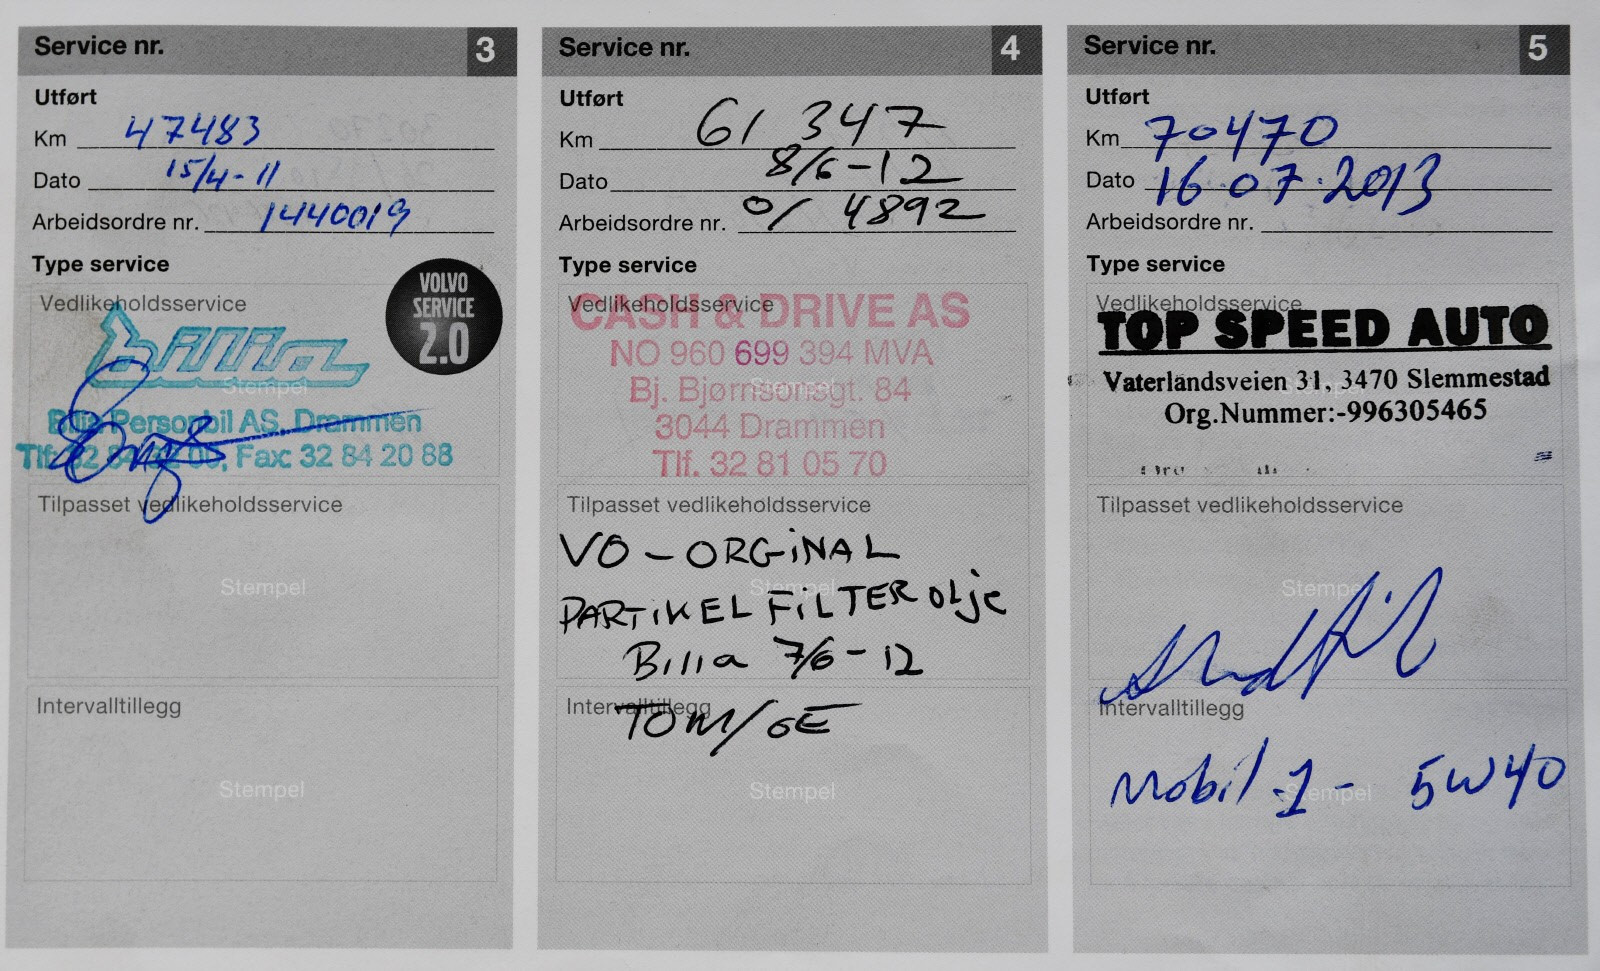 Service nr. 3
Utført
Km 47483
Dato 15/4-11
Arbeidsordre nr. 1440019
Type service
Vedlikeholdsservice
VOLVO
SERVICE
2.0
bilia
Stempel
Bilia Personbil AS, Drammen
Tlf: 32 84 00, Fax: 32 84 20 88
Tilpasset vedlikeholdsservice
Stempel
Intervalltillegg
Stempel
Service nr. 4
Utført
Km 61 347
Dato 8/6-12
Arbeidsordre nr. 0/ 4892
Type service
Vedlikeholdsservice
CASH & DRIVE AS
NO 960 699 394 MVA
Stempel
Bj. Bjørnsonsgt. 84
3044 Drammen
Tlf. 32 81 05 70
Tilpasset vedlikeholdsservice
VO - ORGiNAL
Stempel
PARTiKEL FiLTER OLje
Bilia 7/6-12
Intervalltillegg
TOM/OE
Stempel
Service nr. 5
Utført
Km 70470
Dato 16.07.2013
Arbeidsordre nr.
Type service
Vedlikeholdsservice
TOP SPEED AUTO
Vaterlandsveien 31, 3470 Slemmestad
Stempel
Org.Nummer:-996305465
Tilpasset vedlikeholdsservice
Stempel
Intervalltillegg
Mobil 1 - 5W40
Stempel